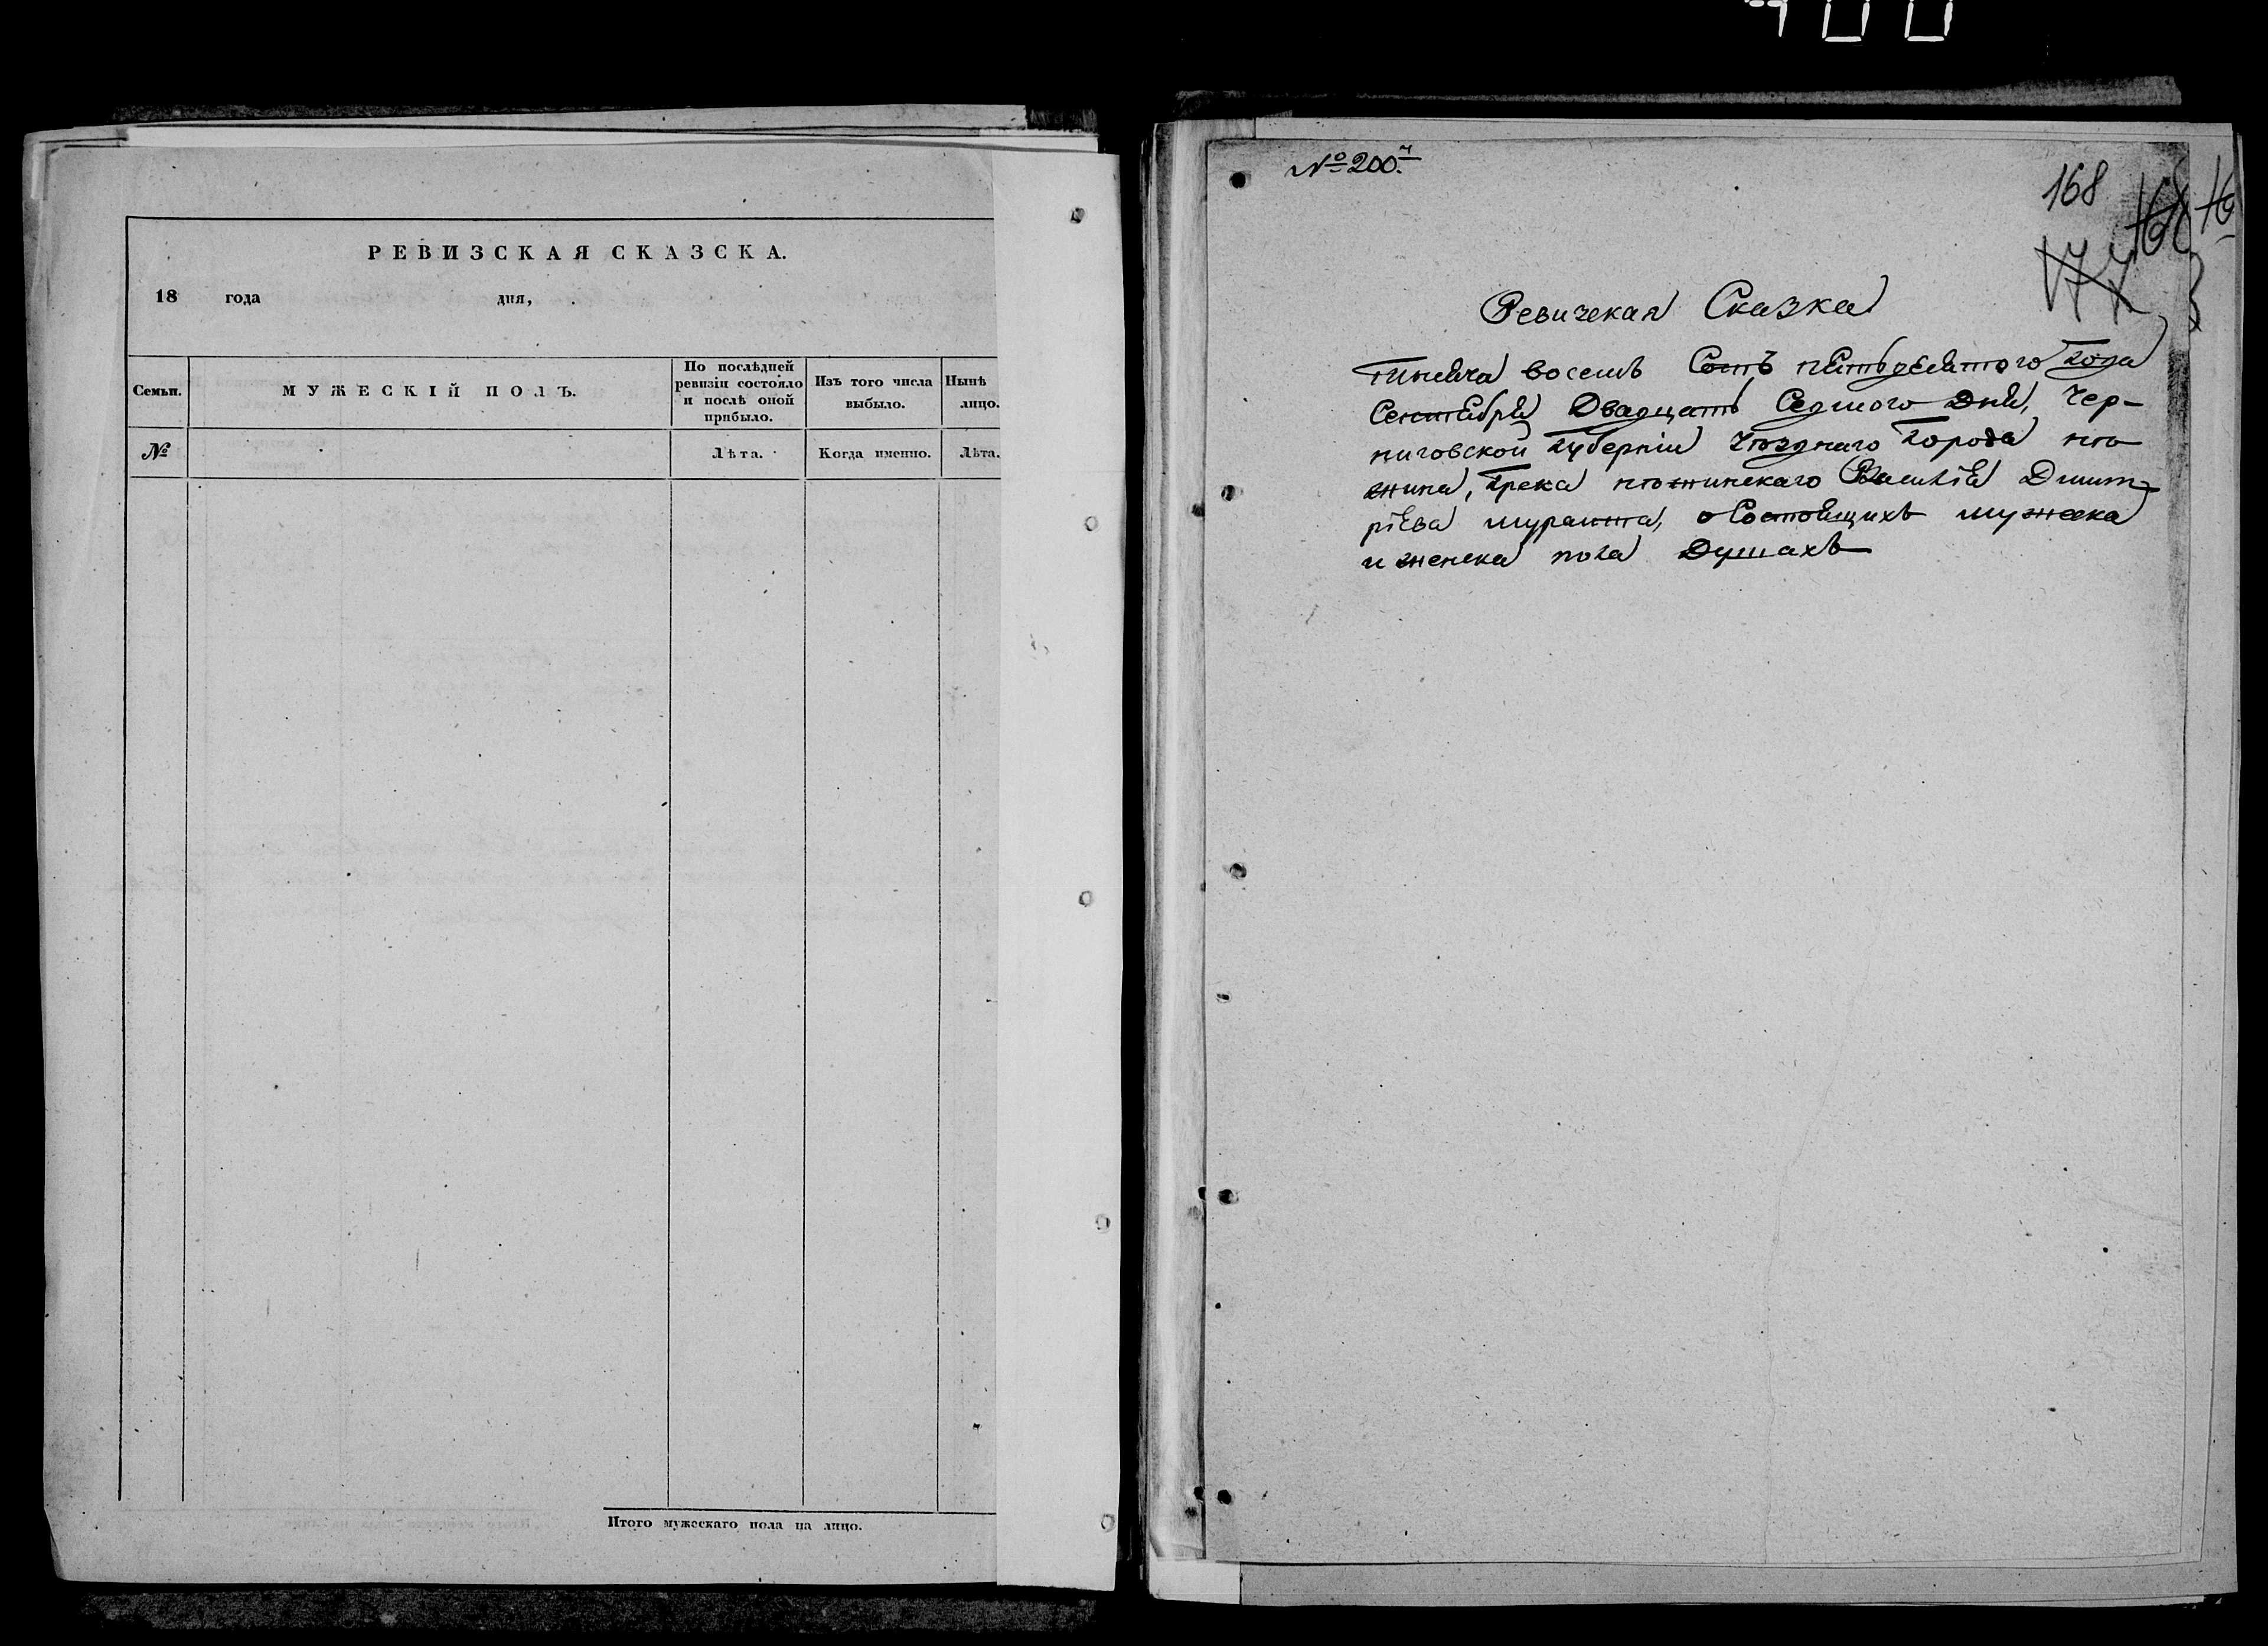 400
РЕВИЗСКАЯ СКАЗСКА.
18 года дня,
Семьи.
МУЖЕСКІЙ ПОЛЪ.
По послѣдней ревизіи состояло и послѣ оной прибыло.
Изъ того числа выбыло.
Нынѣ лицо.
№
Лѣта.
Когда именно.
Лѣта.
Итого мужескаго пола на лицо.
№ 200.й
168
177
Ревичская Сказка
Тисяча восемъ Сотъ пятьдесятого Года
Сентября Двадцать Седмого Дня, Чер-
ниговской Губерніи Уѣзднаго Города нѣ
жина, Грека нѣжинскаго Василія Дмит-
ріева Мурашта, о Состоящихъ мужеска
и женска пола Душахъ